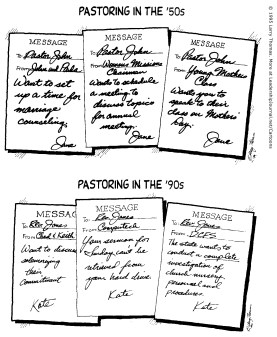 PASTORING IN THE '50s
MESSAGE
To Pastor John
From John and Barba
Want to set
up a time for
marriage
counseling.
Jane
MESSAGE
To Pastor John
From Women's Missions
Chairman
Wants to schedule
a meeting to
discuss topics
for annual
meeting
Jane
MESSAGE
To Pastor John
From Young Mothers
Class
Wants you to
speak to their
class on Mothers'
Day.
Jane
PASTORING IN THE '90s
MESSAG
To Rev Jones
From Chad & Keith
Want to discuss
solemnizing
their
commitment
Kate
MESSAGE
To Rev. Jones
From Computech
Your sermon for
Sunday can't be
retrieved from
your hard drive.
Kate
MESSAGE
To Rev. Jones
From DCFS
The state wants to
conduct a complete
investigation of
church nursery,
personnel and
procedures.
Kate
© 1995 Larry Thomas. More at LeadershipJournal.net/Cartoons